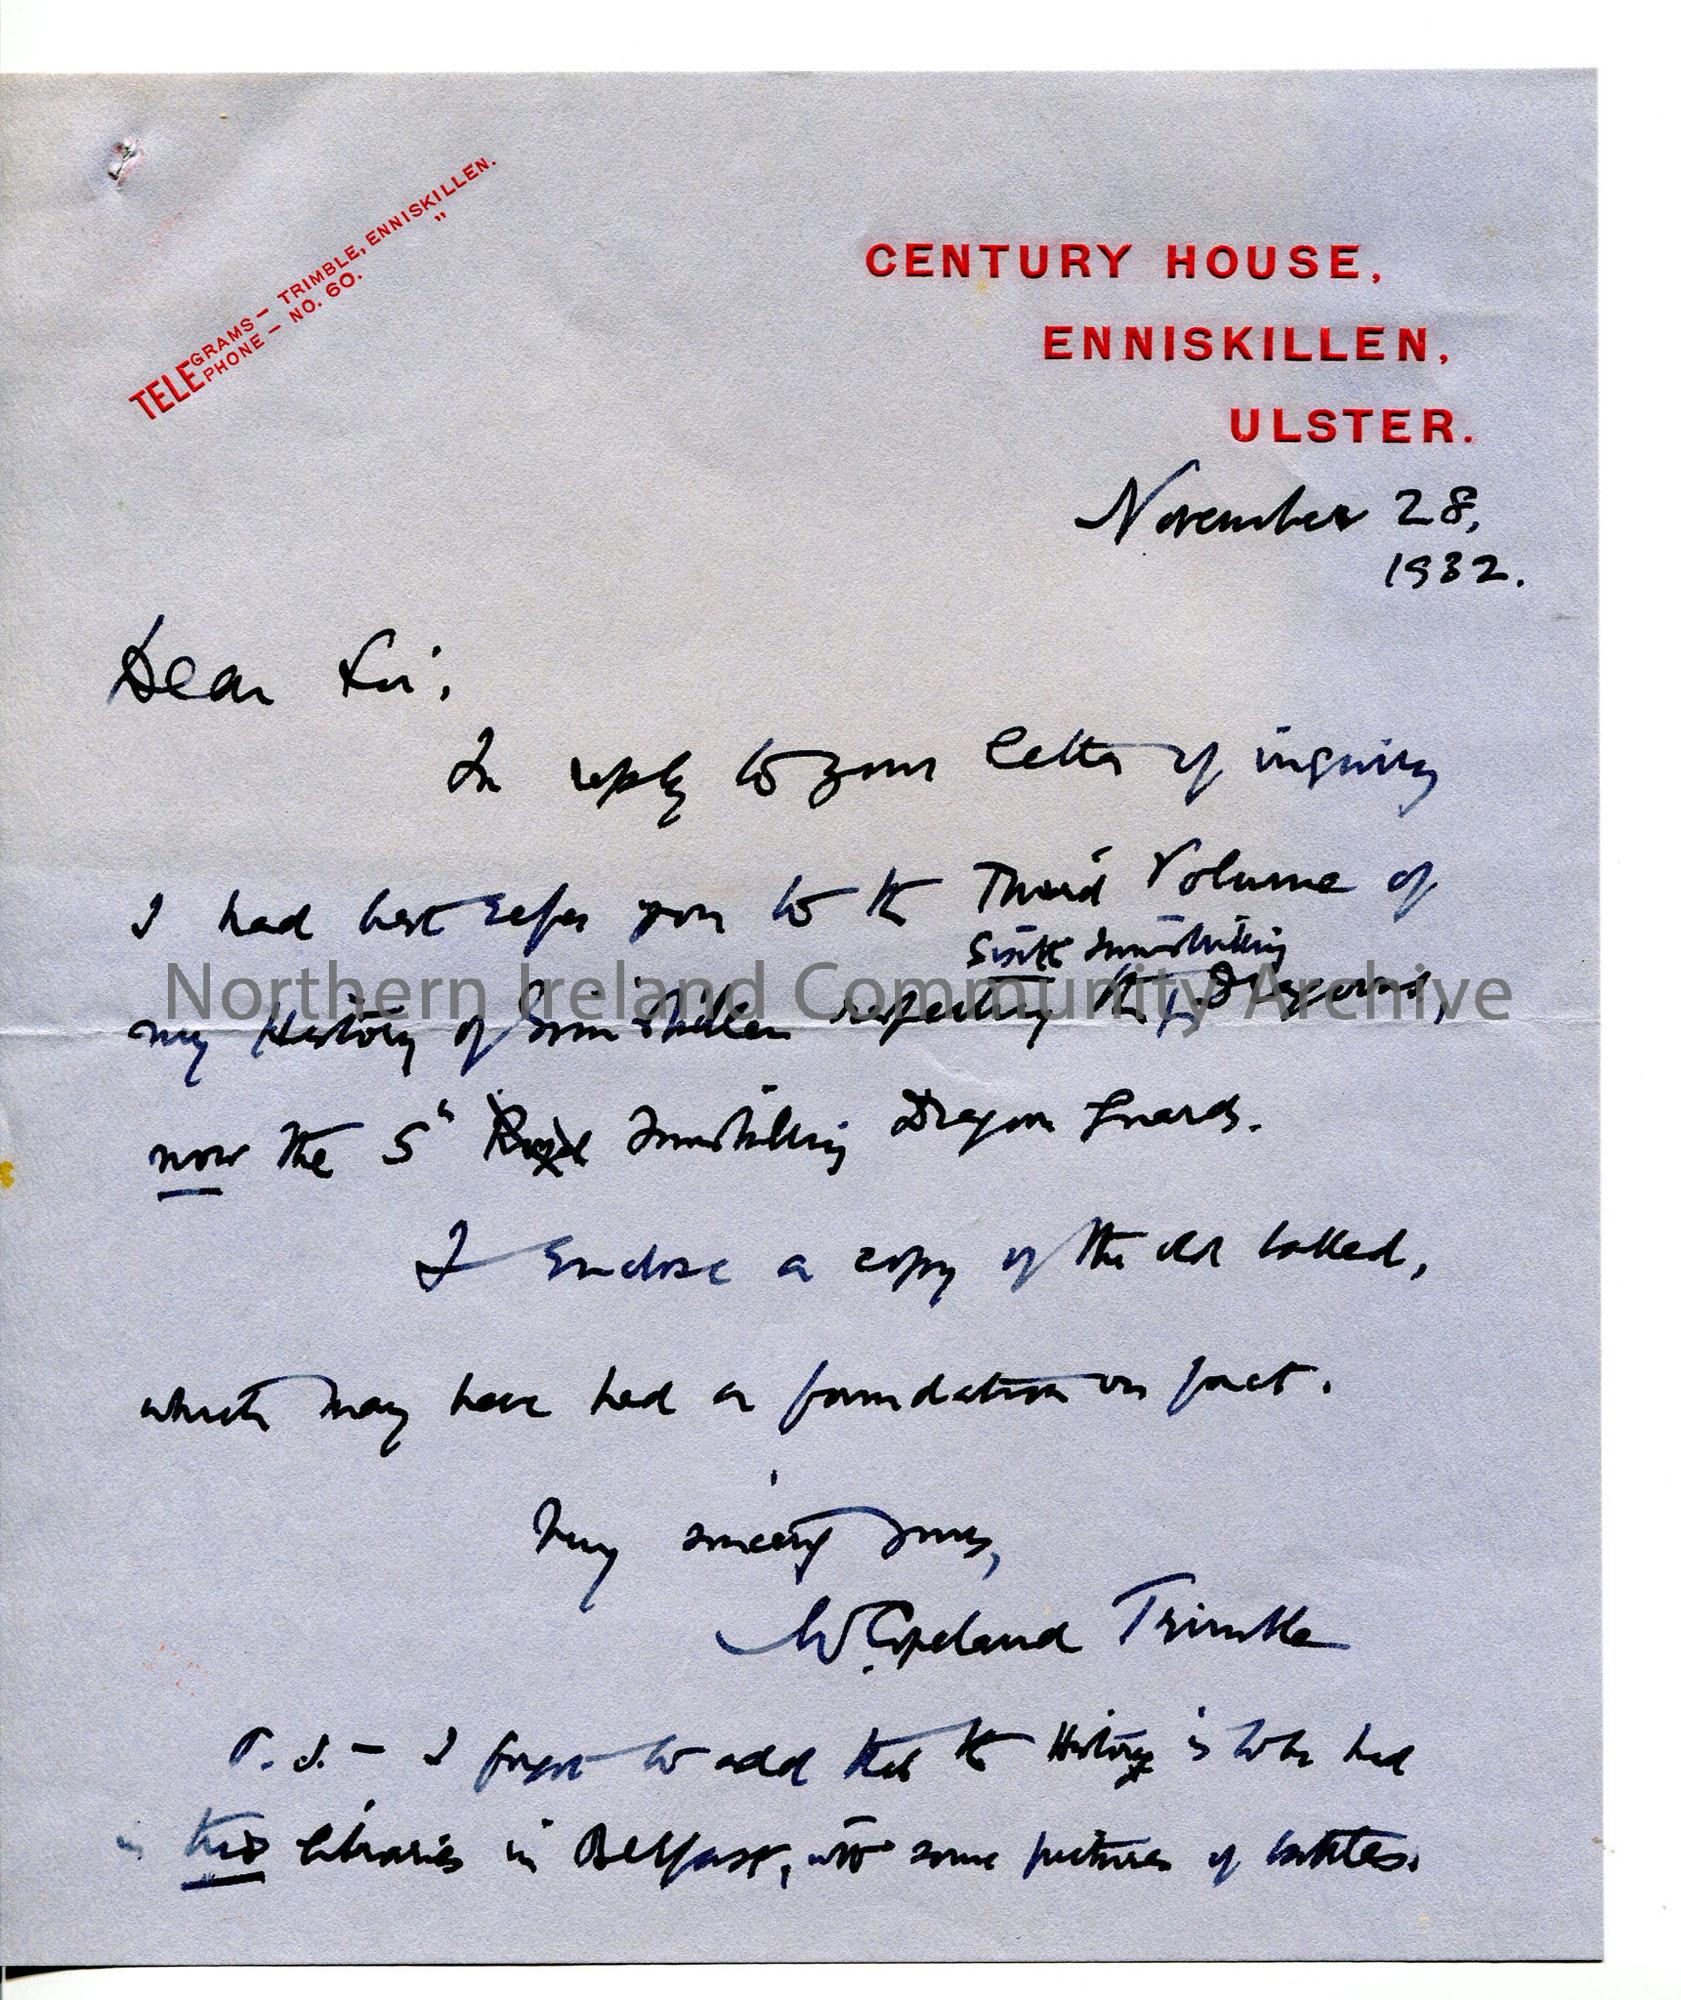 TELEGRAMS – TRIMBLE, ENNISKILLEN.
TELEPHONE – NO. 60. "
CENTURY HOUSE,
ENNISKILLEN,
ULSTER.
November 28,
1932.
Dear Sir,
In reply to your letter of inquiry
I had best refer you to the Third Volume of
Sixth Inniskilling
my History of Enniskillen respecting the Dragoons,
now the 5th Royal Inniskilling Dragoon Guards.
I enclose a copy of the old ballad,
which may have had a foundation in fact.
Very sincerely yours,
W Copeland Trimble
P.S. – I forgot to add that the History is to be had
in two libraries in Belfast, with some pictures of battles.
Northern Ireland Community Archive